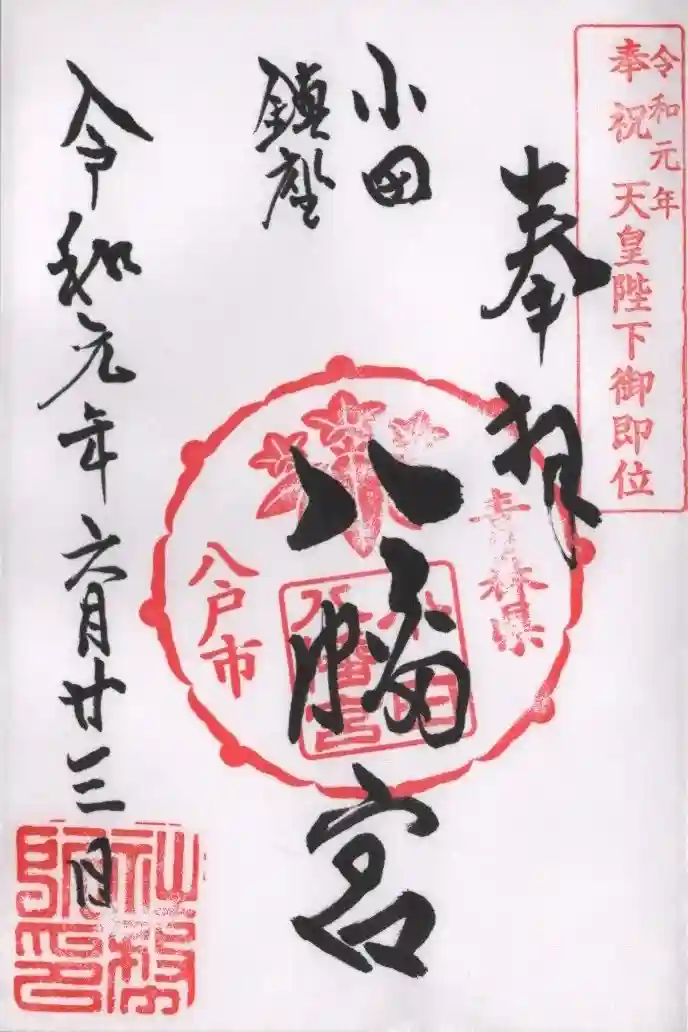 令和元年
奉祝 天皇陛下御即位
奉拝
小田
鎮座
八幡宮
令和元年六月廿三日
青森県
八戸市
小田
八幡宮
社務
所印